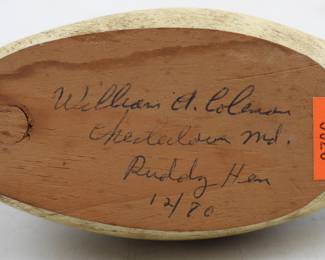 William A. Coleman
Chestertown Md.
Ruddy Hen
12/80